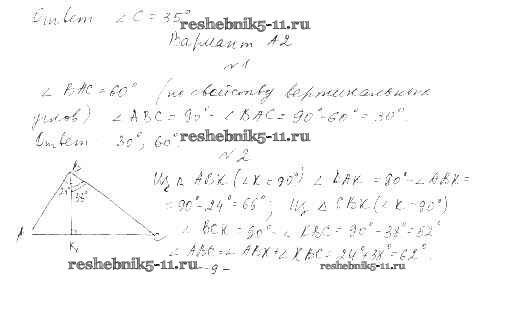 Ответ ∠C = 35°
reshebnik5-11.ru
Вариант А2
№1
∠ BAC = 60° (по свойству вертикальных
углов) ∠ ABC = 90° - ∠ BAC = 90° - 60° = 30°.
Ответ 30°, 60°.
reshebnik5-11.ru
№2
B
24° 38°
A K
Из △ ABK (∠K = 90°) ∠ BAK = 90° - ∠ ABK =
= 90° - 24° = 66°; Из △ CBK (∠K = 90°)
∠ BCK = 90° - ∠ KBC = 90° - 38° = 52°
∠ ABC = ∠ ABK + ∠ KBC = 24° + 38° = 62°.
reshebnik5-11.ru
- 9 -
reshebnik5-11.ru